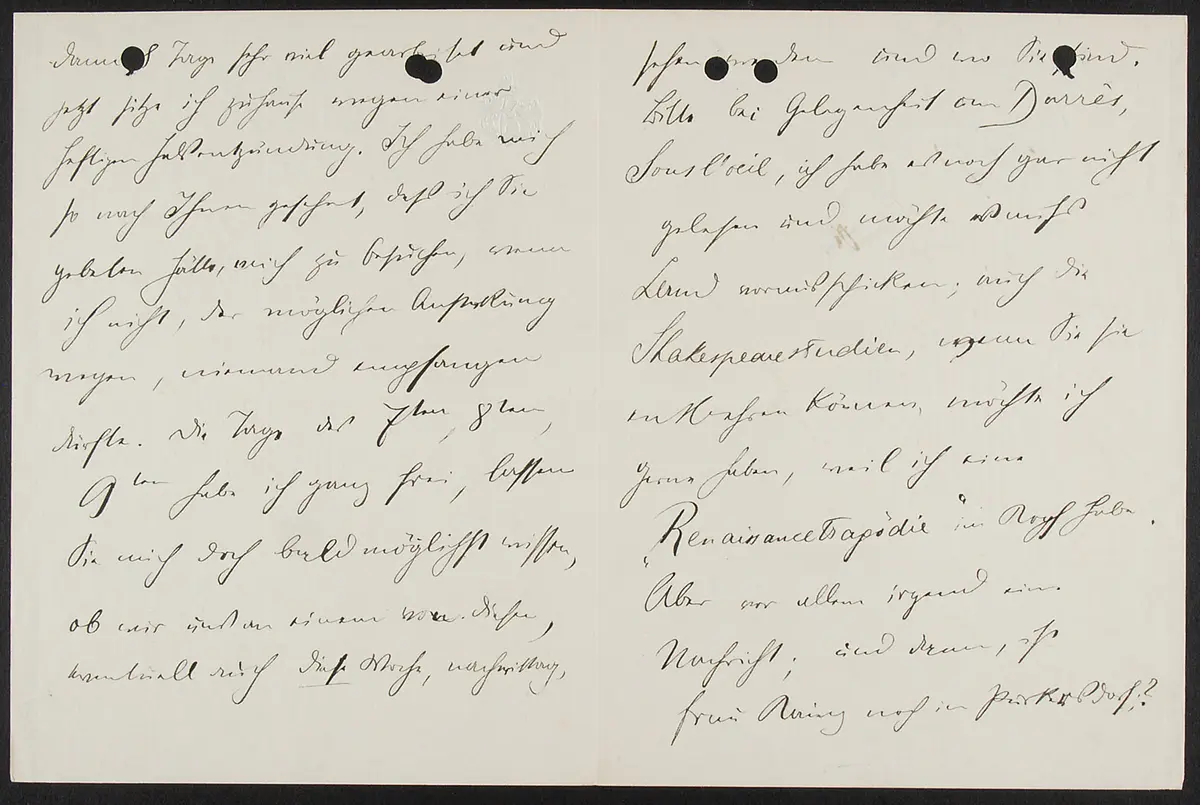 dann 8 Tage sehr viel gearbeitet und
jetzt sitze ich zuhause wegen einer
heftigen Halsentzündung. Ich habe mich
so nach Ihnen gesehnt, daß ich Sie
gebeten hätte, mich zu besuchen, wenn
ich nicht, der möglichen Ansteckung
wegen, niemand empfangen
dürfte. Die Tage des 7ten, 8ten,
9ten habe ich ganz frei, lassen
Sie mich doch baldmöglichst wissen,
ob wir uns an einem von diesen,
eventuell auch diese Woche, nachmittag,
sehen werden und wo Sie sind.
Bitte bei Gelegenheit um Barrès,
Sous l'œil, ich habe es noch gar nicht
gelesen und möchte es aufs
Land vorausschicken; auch die
Shakespearestudien, wenn Sie sie
entbehren können, möchte ich
gerne haben, weil ich eine
„Renaissancetragödie“ im Kopf habe.
Aber vor allem irgend eine
Nachricht; und dann, ist
Frau noch in Purkersdorf?